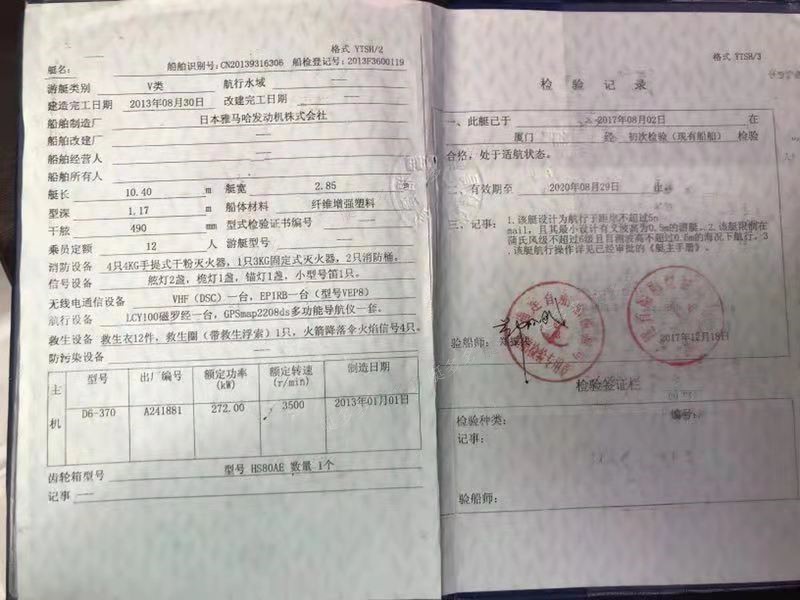 格式 YTSH/2
艇名: 船舶识别号:CN20139316306 船检登记号:2013F3600119
游艇类别 V类 航行水域 —
建造完工日期 2013年08月30日 改建完工日期 —
船舶制造厂 日本雅马哈发动机株式会社
船舶改建厂 —
船舶经营人 —
船舶所有人
艇长 10.40 m 艇宽 2.85
型深 1.17 m 船体材料 纤维增强塑料
干舷 490 mm 型式检验证书编号 —
乘员定额 12 人 游艇型号 —
消防设备 4只4KG手提式干粉灭火器，1只3KG固定式灭火器，2只消防桶。
信号设备 舷灯2盏，桅灯1盏，锚灯1盏，小型号笛1只。
无线电通信设备 VHF (DSC) 一台，EPIRB一台（型号VEP8）
航行设备 LCY100磁罗经一台，GPSmap2208ds多功能导航仪一套。
救生设备 救生衣12件，救生圈（带救生浮索）1只，火箭降落伞火焰信号4只。
防污染设备 —
主机 型号 出厂编号 额定功率(kW) 额定转速(r/min) 制造日期
D6-370 A241881 272.00 3500 2013年01月01日
齿轮箱型号 型号 HS80AE 数量 1个
记事 —
格式 YTSH/3
检 验 记 录
一、此艇已于 2017年08月02日 在
厦门 经 初次检验（现有船舶） 检验
合格，处于适航状态。
二、有效期至 2020年08月29日 止。
三、记事： 1.该艇设计为航行于距岸不超过5n
mail，且其最小设计有义波高为0.5m的游艇。2.该艇限制在
蒲氏风级不超过6级且目测波高不超过0.5m的海况下航行。3
.该艇航行操作详见已经审批的《艇主手册》。
验船师:
2017年12月18日
检验签证栏
检验种类: 编号:
记事:
验船师: